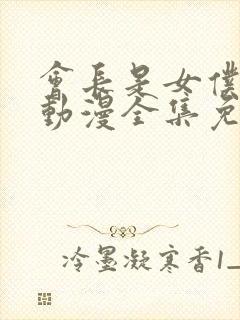 會長是女僕
動漫全集免
冷墨凝寒香1_